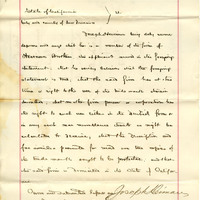 State of California } ss.
City and County of San Francisco
Joseph Newman being duly sworn
deposes and says that he is a member of the firm of
Newman Brothers the applicants named in the foregoing
statement; that he verily believes that the foregoing
statement is true, that the said firm has at this
time a right to the use of the trade-mark therein
described, that no other firm person or corporation has
the right to such use either in the identical form or
in any such near resemblance thereto as might be
calculated to deceive, that the description and
fac-similes presented for record are true copies of
the trade-mark sought to be protected, and that
the said firm is domiciled in the State of California
Sworn and subscribed before me Joseph Newman